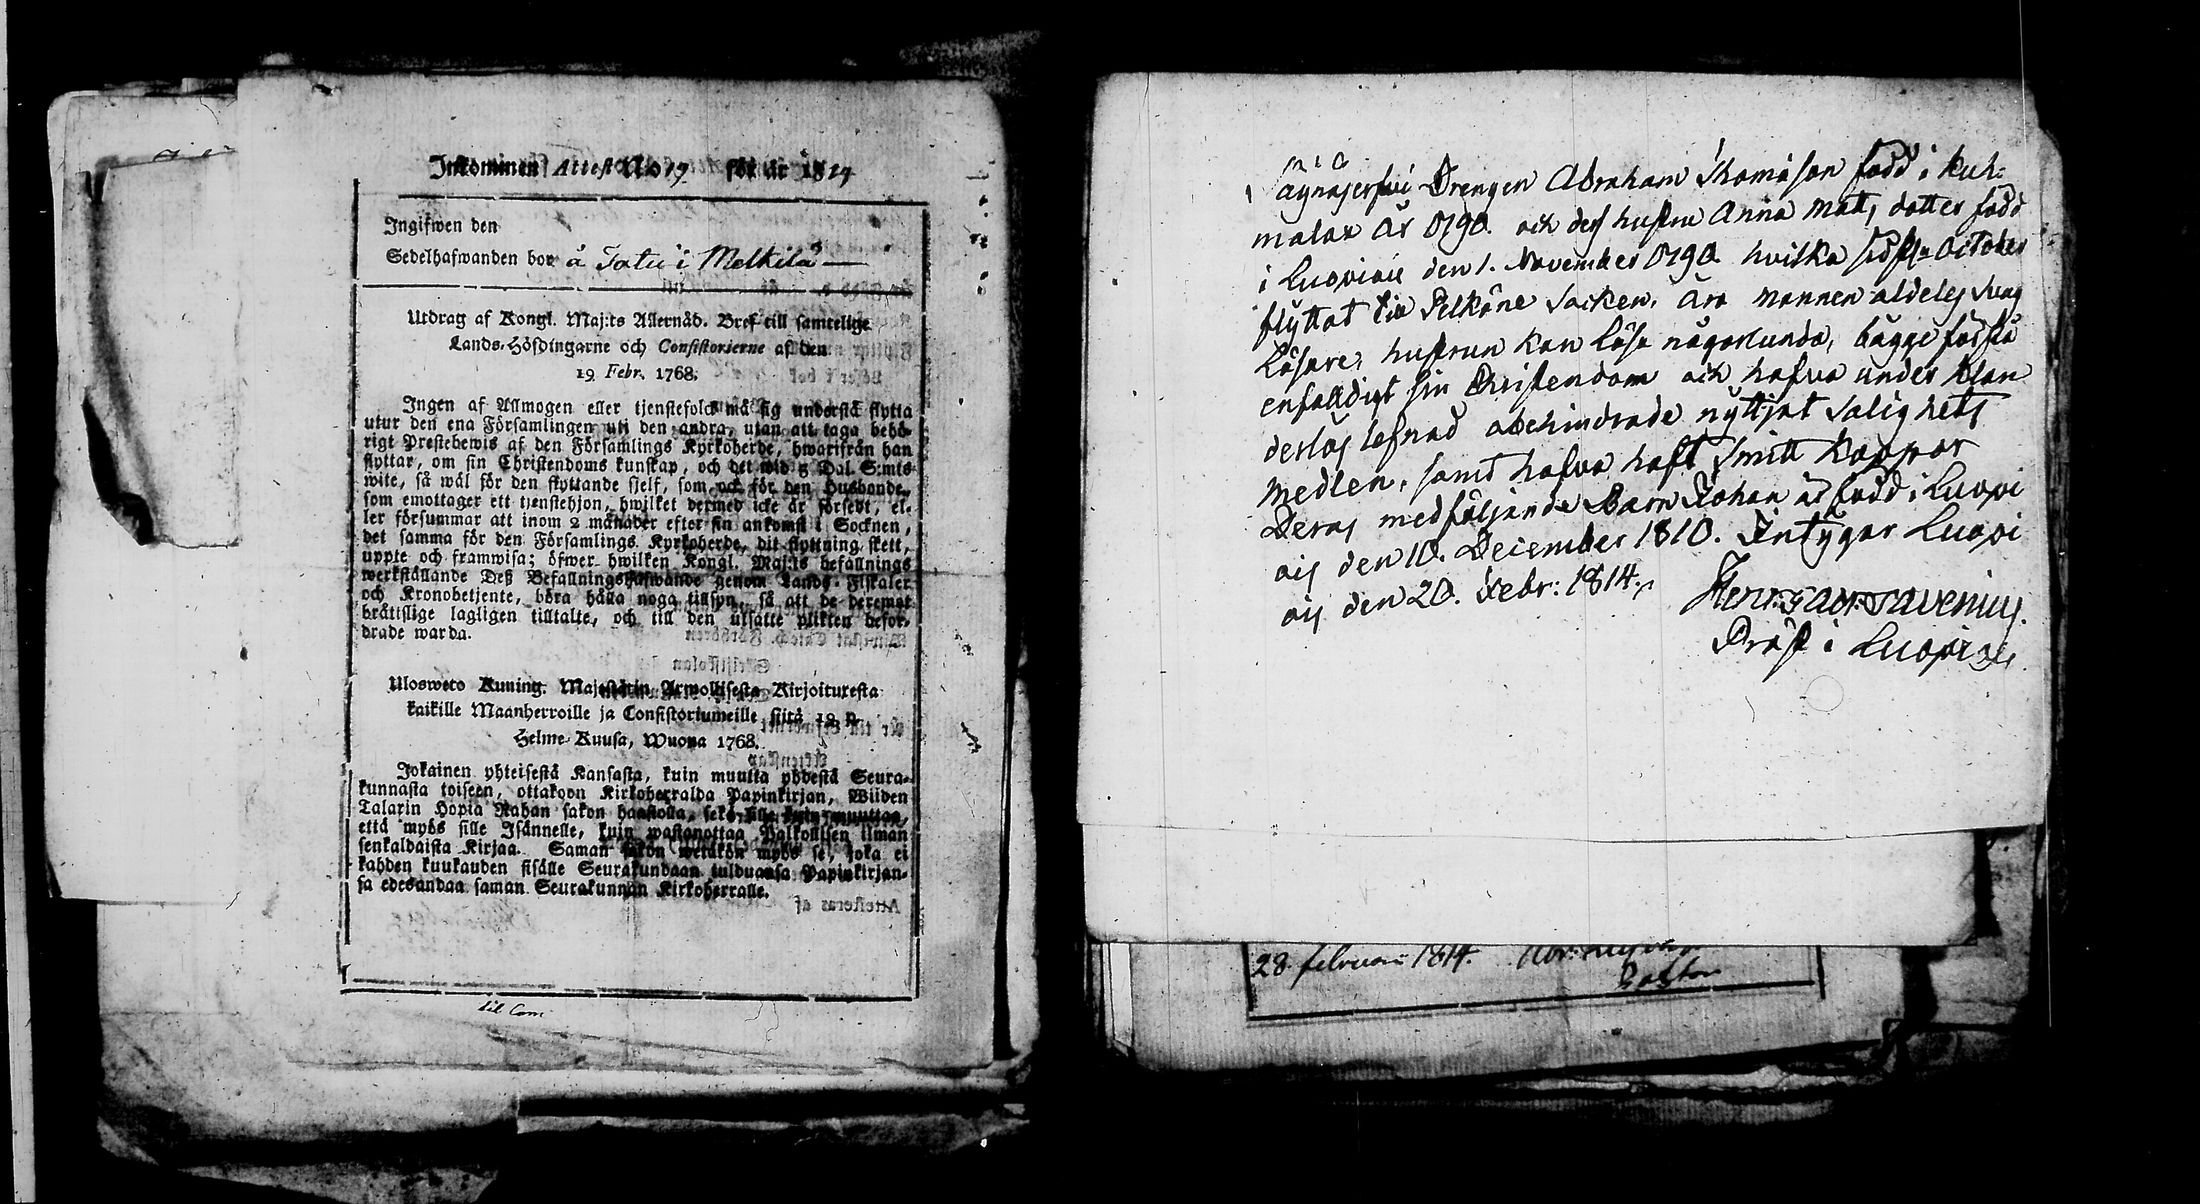 Inkommen Attest No 19. för år 1814
Ingifwen den
Sedelhafwanden bor å Tatu i Melkilä
Utdrag af Kongl. Maj:ts Allernåd. Bref till samtelige
Lands-Höfdingarne och Consistorierne af den
19 Febr. 1768.
Ingen af Allmogen eller tjenstefolck må sig understå flytta
utur den ena Församlingen uti den andra, utan att taga behö-
rigt Prestebewis af den Församlings Kyrkoherde, hwarifrån han
flyttar, om sin Christendoms kunskap, och det wid 5 Dal. S:mts
wite, så wäl för den flyttande sjelf, som ock för den Husbonde,
som emottager ett tjenstehjon, hwilket dermed icke är försedt, el-
ler försummar att inom 2 månader efter sin ankomst i Socknen,
det samma för den Församlings Kyrkoherde, dit flyttning skett,
uppte och framwisa; öfwer hwilken Kongl. Maj:ts befallnings
werkställande Deß Befallningshafwande genom Lands-Fiskaler
och Kronobetjente, böra hålla noga tillsyn, så att de deremot
bråttslige lagligen tilltalte, och till den utsatte plikten befor-
drade warda.
Ulosweto Kuning. Majestätin Armollisesta Kirjoituxesta
kaikille Maanherroille ja Consistoriumeille siitä 19 p.
Helme-Kuusa, Wuona 1768.
Jokainen yhteisestä Kansasta, kuin muutta yhdestä Seura-
kunnasta toiseen, ottakoon Kirkoherralda Papinkirjan, Wiiden
Talarin Hopia Rahan sakon haastolla, sekä sille kuin muuttaa,
että myös sille Isännelle, kuin wastanottaa Palkollisen ilman
senkaldaista Kirjaa. Saman sakon wetäkön myös se, joka ei
kahden kuukauden sisälle Seurakundaan tulduansa Papinkirjan-
sa edesandaa saman Seurakunnan Kirkoherralle.
til Com
Drengen Abraham Thomasson född i Kuh-
malax År 1790. och dess hustru Anna Matts dotter född
i Luopiois den 1. November 1790. hvilka sidstl. October
flyttat til Pelkäne Socken, äro mannen aldeles svag
läsare, hustrun kan läsa någorlunda, bägge förstå
enfaldigt sin Christendom och hafva under klan
derlös lefnad obehindrade nyttjat Salighets
medlen, samt hafva haft Smitt Koppor
Deras medföljande Barn Johan är född i Luopi
ois den 10. December 1810. Intygar Luopi
ois den 20. Febr: 1814.
Henr: Gabr: Tavenius.
Pråst i Luopiois
28 februari 1814.
Pastor